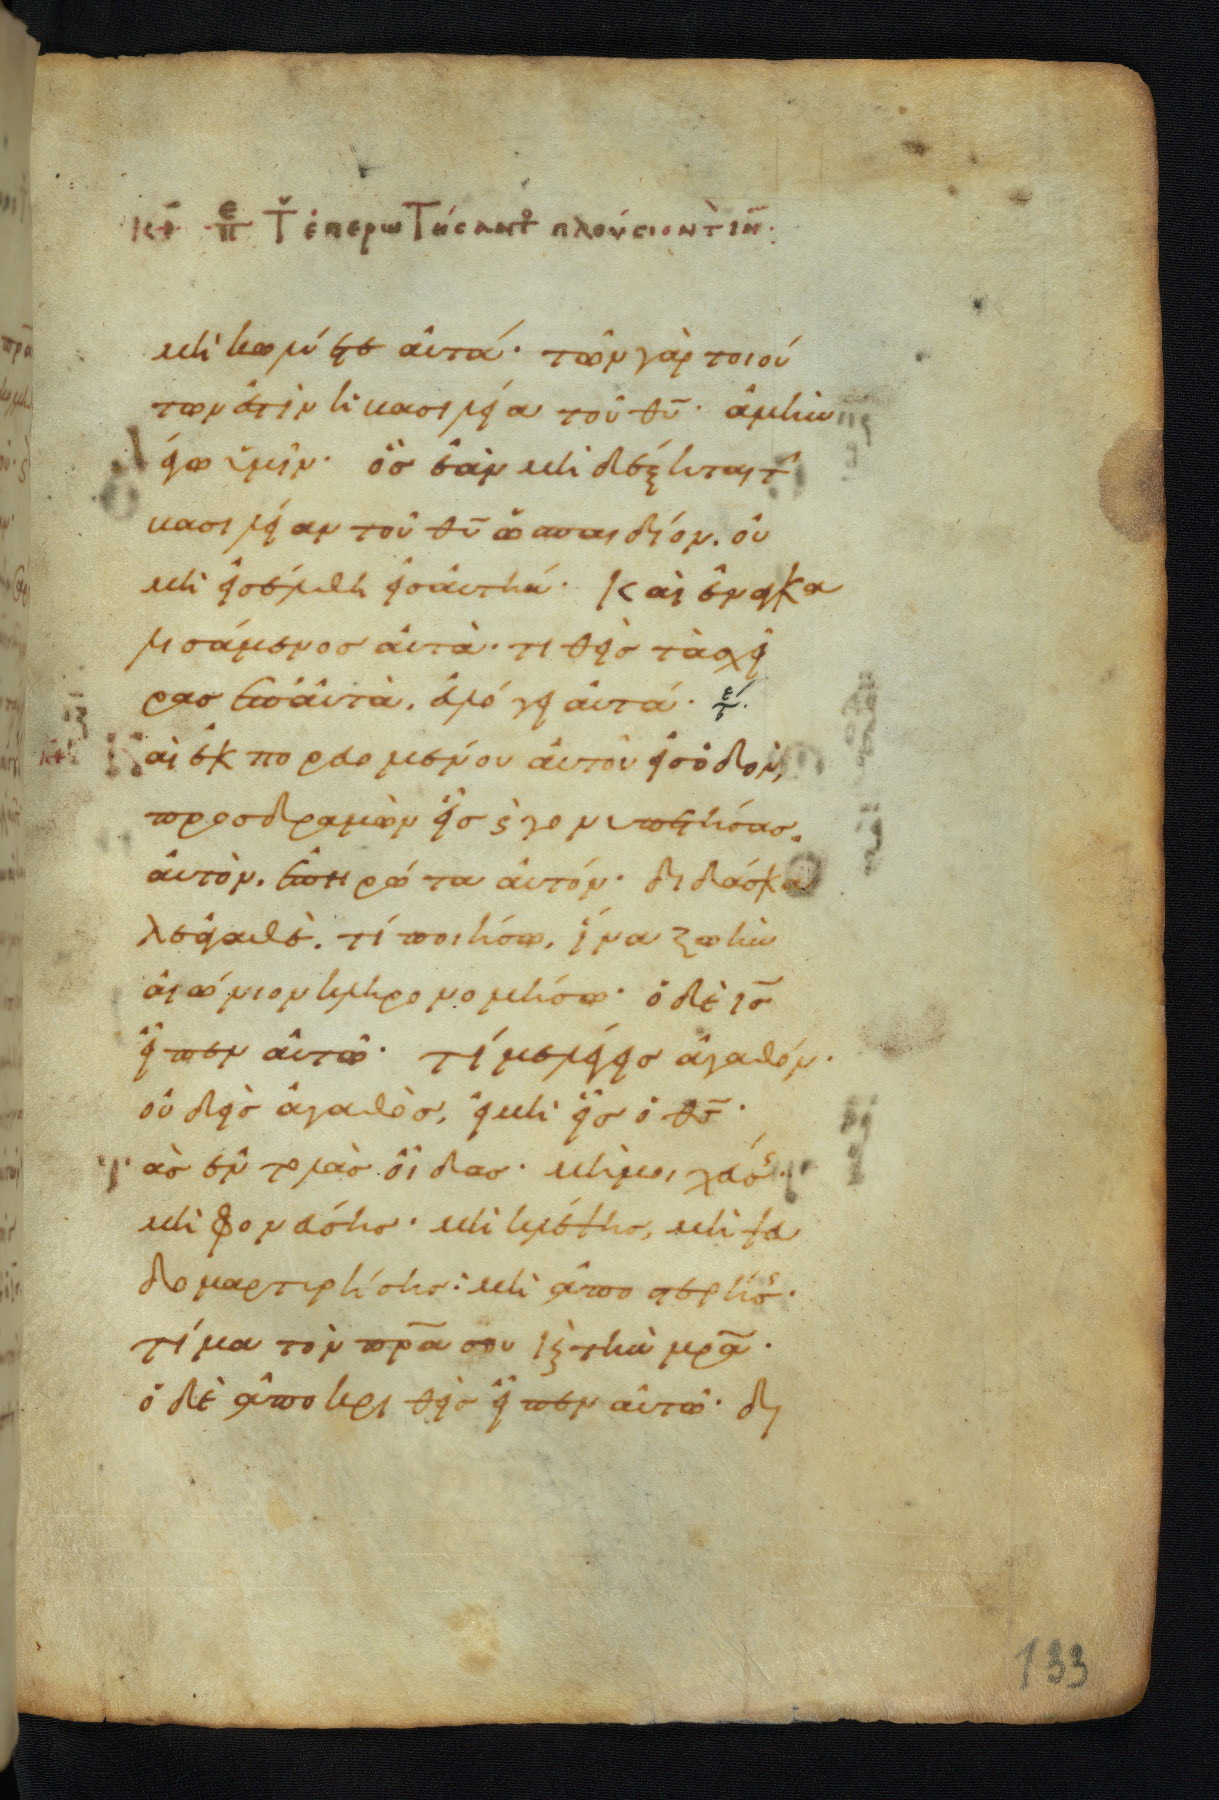 κε επι τ επερωτησαντ πλουσιον τ ιν.
μὴ κωλύετε ἀυτά· τῶν γὰρ τοιού
των ἐστὶν ἡ βασιλεία τοῦ θυ̅· ἀμὴν
λέγω ὑμῖν· ὃς ἐὰν μὴ δέξηται τ
βασιλείαν τοῦ θυ̅ ὡς παιδίον. οὐ
μὴ εἰσέλθη εἰς ἀυτήν· καὶ ἐναγκα
λισάμενος ἀυτὰ. τιθεὶς τὰς χεῖ
ρας ἐπ ἀυτὰ. ἐυλόγει ἀυτά·
Καὶ ἐκπορευομένου ἀυτοῦ εἰς ὁδὸν,
προσδραμὼν εἷς ϛ γονυπετήσας
ἀυτὸν. ἐπηρώτα ἀυτόν· διδάσκα
λε ἀγαθὲ. τί ποιήσω. ἵνα ζωὴν
ἀιώνιον κληρονομήσω· ὁ δὲ ις̅
εἶπεν ἀυτῶ· τί με λέγεις ἀγαθόν.
οὐδεὶς ἀγαθὸς, εἰ μὴ εἷς ὁ θς̅·
τὰς ἐντολὰς οἶδας· μὴ μοιχεύσης.
μὴ φονεύσης· μὴ κλέψης, μὴ ψευ
δομαρτυρήσης: μὴ ἀποστερήσης.
τίμα τὸν πρ̅α σου ϗ τὴν μρ̅α.
ὁ δὲ ἀποκριθεὶς εἶπεν ἀυτῶ· δι
133